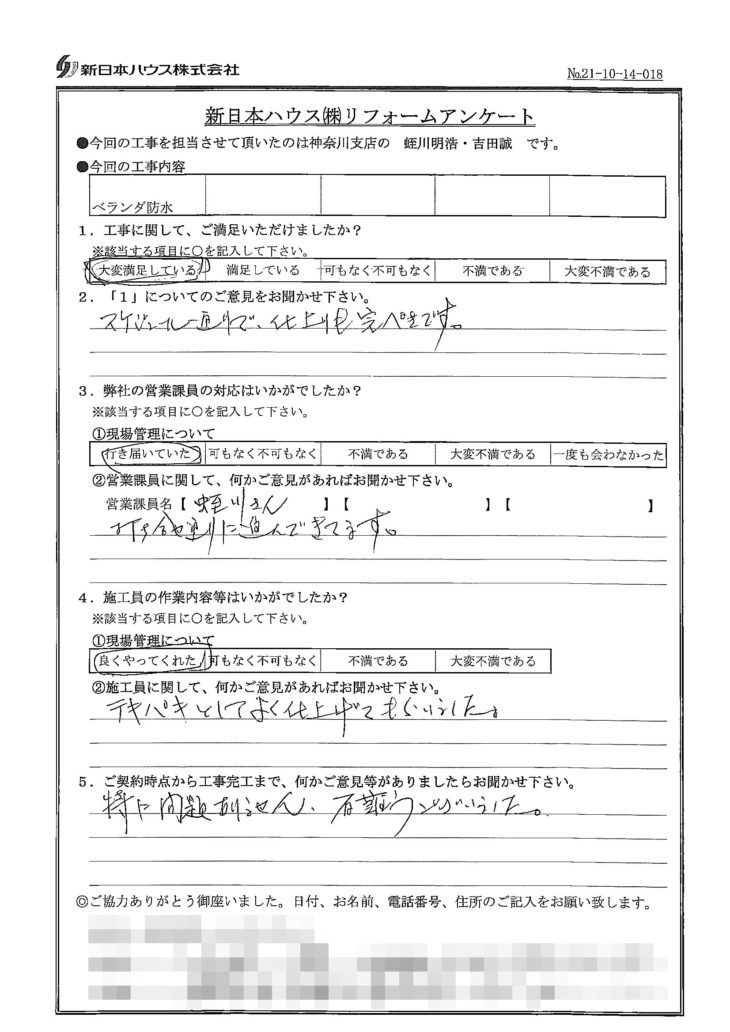 新日本ハウス株式会社
№21-10-14-018
新日本ハウス㈱リフォームアンケート
●今回の工事を担当させて頂いたのは神奈川支店の 蛭川明浩・吉田誠 です。
●今回の工事内容
ベランダ防水
1．工事に関して、ご満足いただけましたか？
※該当する項目に○を記入して下さい。
大変満足している 満足している 可もなく不可もなく 不満である 大変不満である
2．「1」についてのご意見をお聞かせ下さい。
スケジュール通りで、仕上りも完ぺきです。
3．弊社の営業課員の対応はいかがでしたか？
※該当する項目に○を記入して下さい。
①現場管理について
行き届いていた 可もなく不可もなく 不満である 大変不満である 一度も会わなかった
②営業課員に関して、何かご意見があればお聞かせ下さい。
営業課員名【 蛭川さん 】【 】【 】
打ち合せ通りに進んできてます。
4．施工員の作業内容等はいかがでしたか？
※該当する項目に○を記入して下さい。
①現場管理について
良くやってくれた 可もなく不可もなく 不満である 大変不満である
②施工員に関して、何かご意見があればお聞かせ下さい。
テキパキとしてよく仕上げてもらいました。
5．ご契約時点から工事完工まで、何かご意見等がありましたらお聞かせ下さい。
特に問題ありません、うございました。
◎ご協力ありがとう御座いました。日付、お名前、電話番号、住所のご記入をお願い致します。